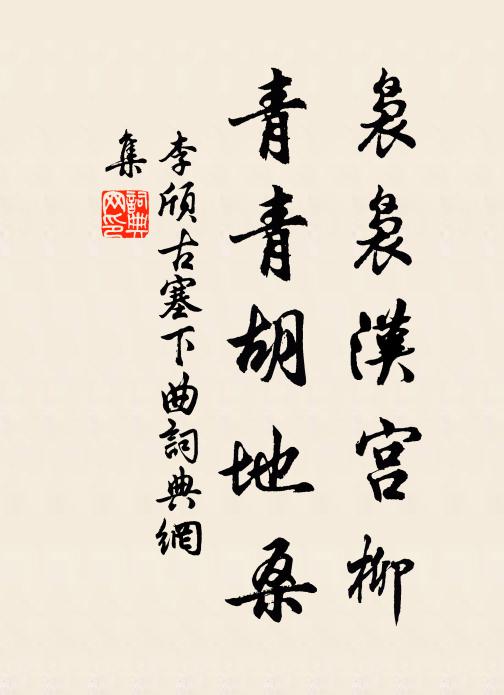 袅袅漢宫柳
青青胡地桑
李頎古塞下曲詞典網
集
詞典
网印